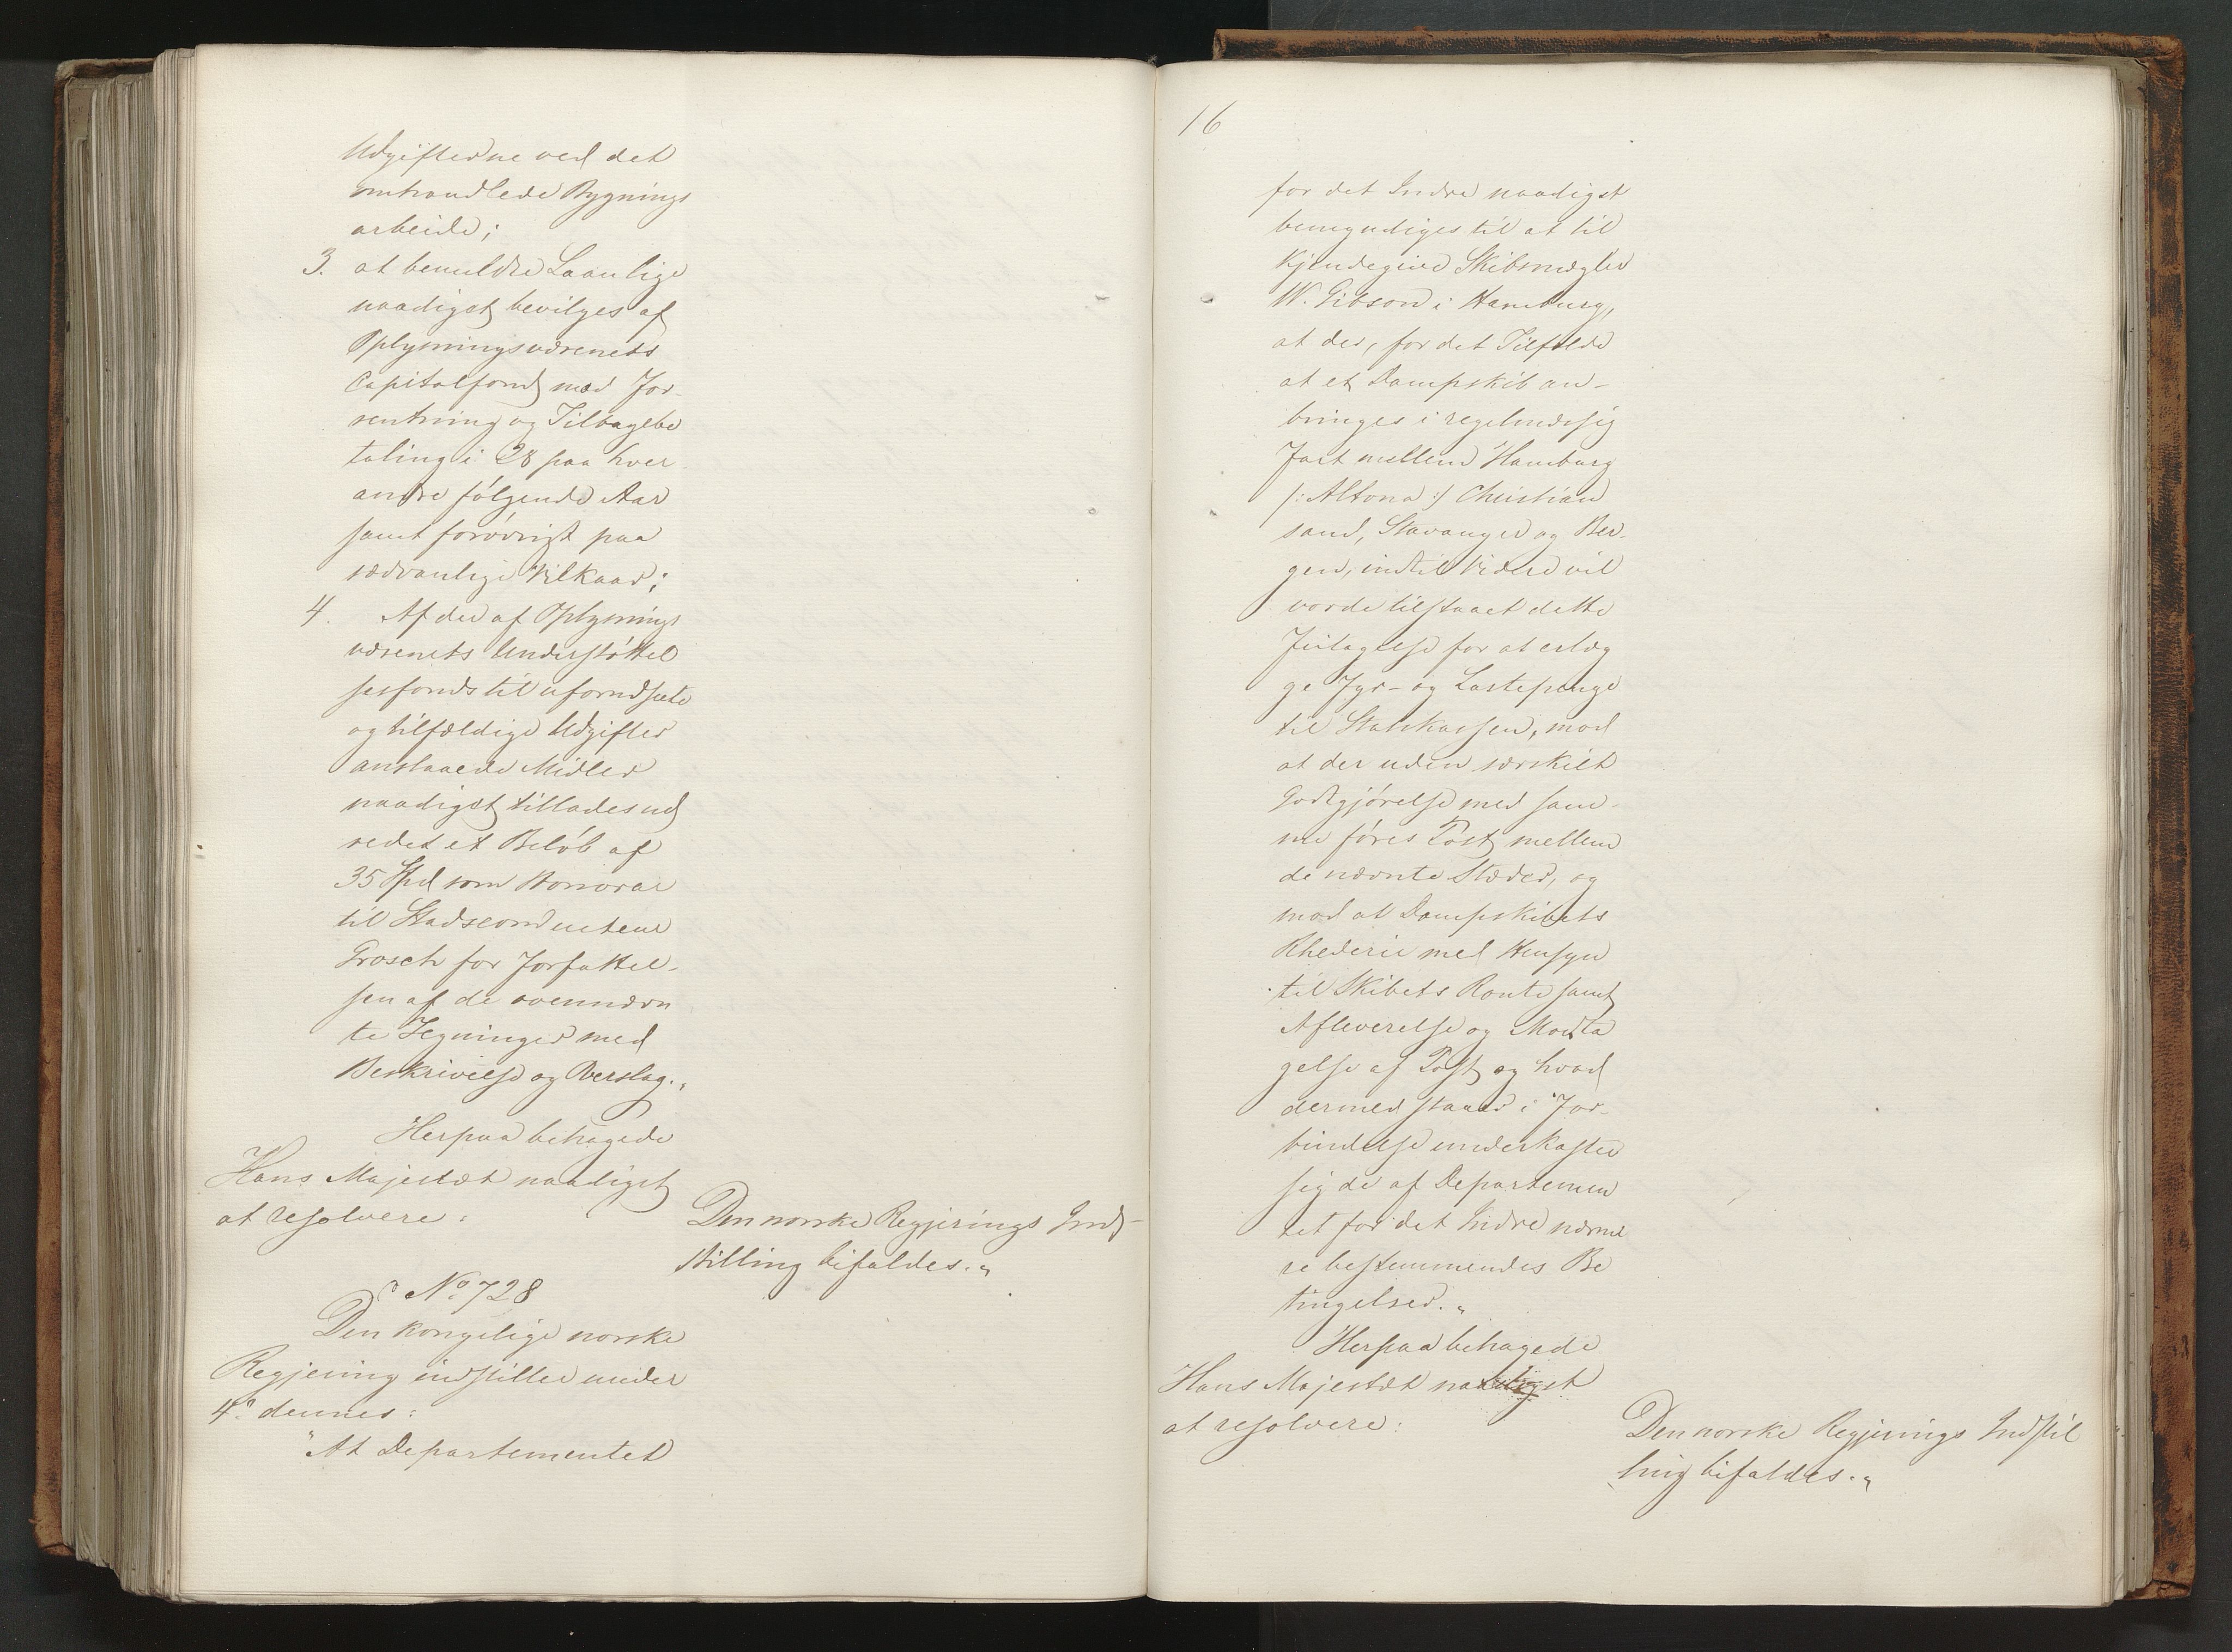 Udgifterne ved det
omhandlede Bygnings
arbeide;
3. at bemeldte Laan lige
naadigst bevilges af
Oplysningsvæsenets
Capitalfond mod For-
rentning og Tilbagebe
taling i 28 paa hver
andre følgende Aar
samt forøvrigt paa
sædvanlige Vilkaar;
4. Af de af Oplysnings
væsenets Understøttel
sesfonds til uforudseete
og tilfældige Udgifter
anslaaede Midler
naadigst tillades ud
redet et Beløb af
35 Spd som Honorar
til Stadsconducteur
Grosch for Forfattel-
sen af de ovennævn
te Tegninger med
Beskrivelse og Overslag.„
Herpaa behagede
Hans Majestæt naadigst
at resolvere:
Den norske Regjerings Ind-
stilling bifaldes.„
No 728
Den kongelige norske
Regjering indstiller under
4de dennes:
"At Departementet
16
for det Indre naadigst
bemyndiges til at til
kjendegive Skibsmægler
W. Gibson i Hamburg,
at der, for det Tilfælde
at et Dampskib an-
bringes i regelmæssig
Fart mellem Hamburg
/: Altona :/ Christian
sand, Stavanger og Ber-
gen, indtil Videre vil
vorde tilstaaet dette
Fritagelse for at erlæg
ge Fyr- og Lastepenge
til Statskassen, mod
at der uden særskilt
Godtgjørelse med sam-
me føres Post mellem
de nævnte Stæder, og
mod at Dampskibets
Rhederie med Hensyn
til Skibets Route samt
Afleverelse og Modta
gelse af Post og hvad
dermed staaer i For-
bindelse underkaster
sig de af Departemen
tet for det Indre nærme
re bestemmendes Be
tingelser.„
Herpaa behagede
Hans Majestæt naadigst
at resolvere:
Den norske Regjerings Indstil
ling bifaldes.„